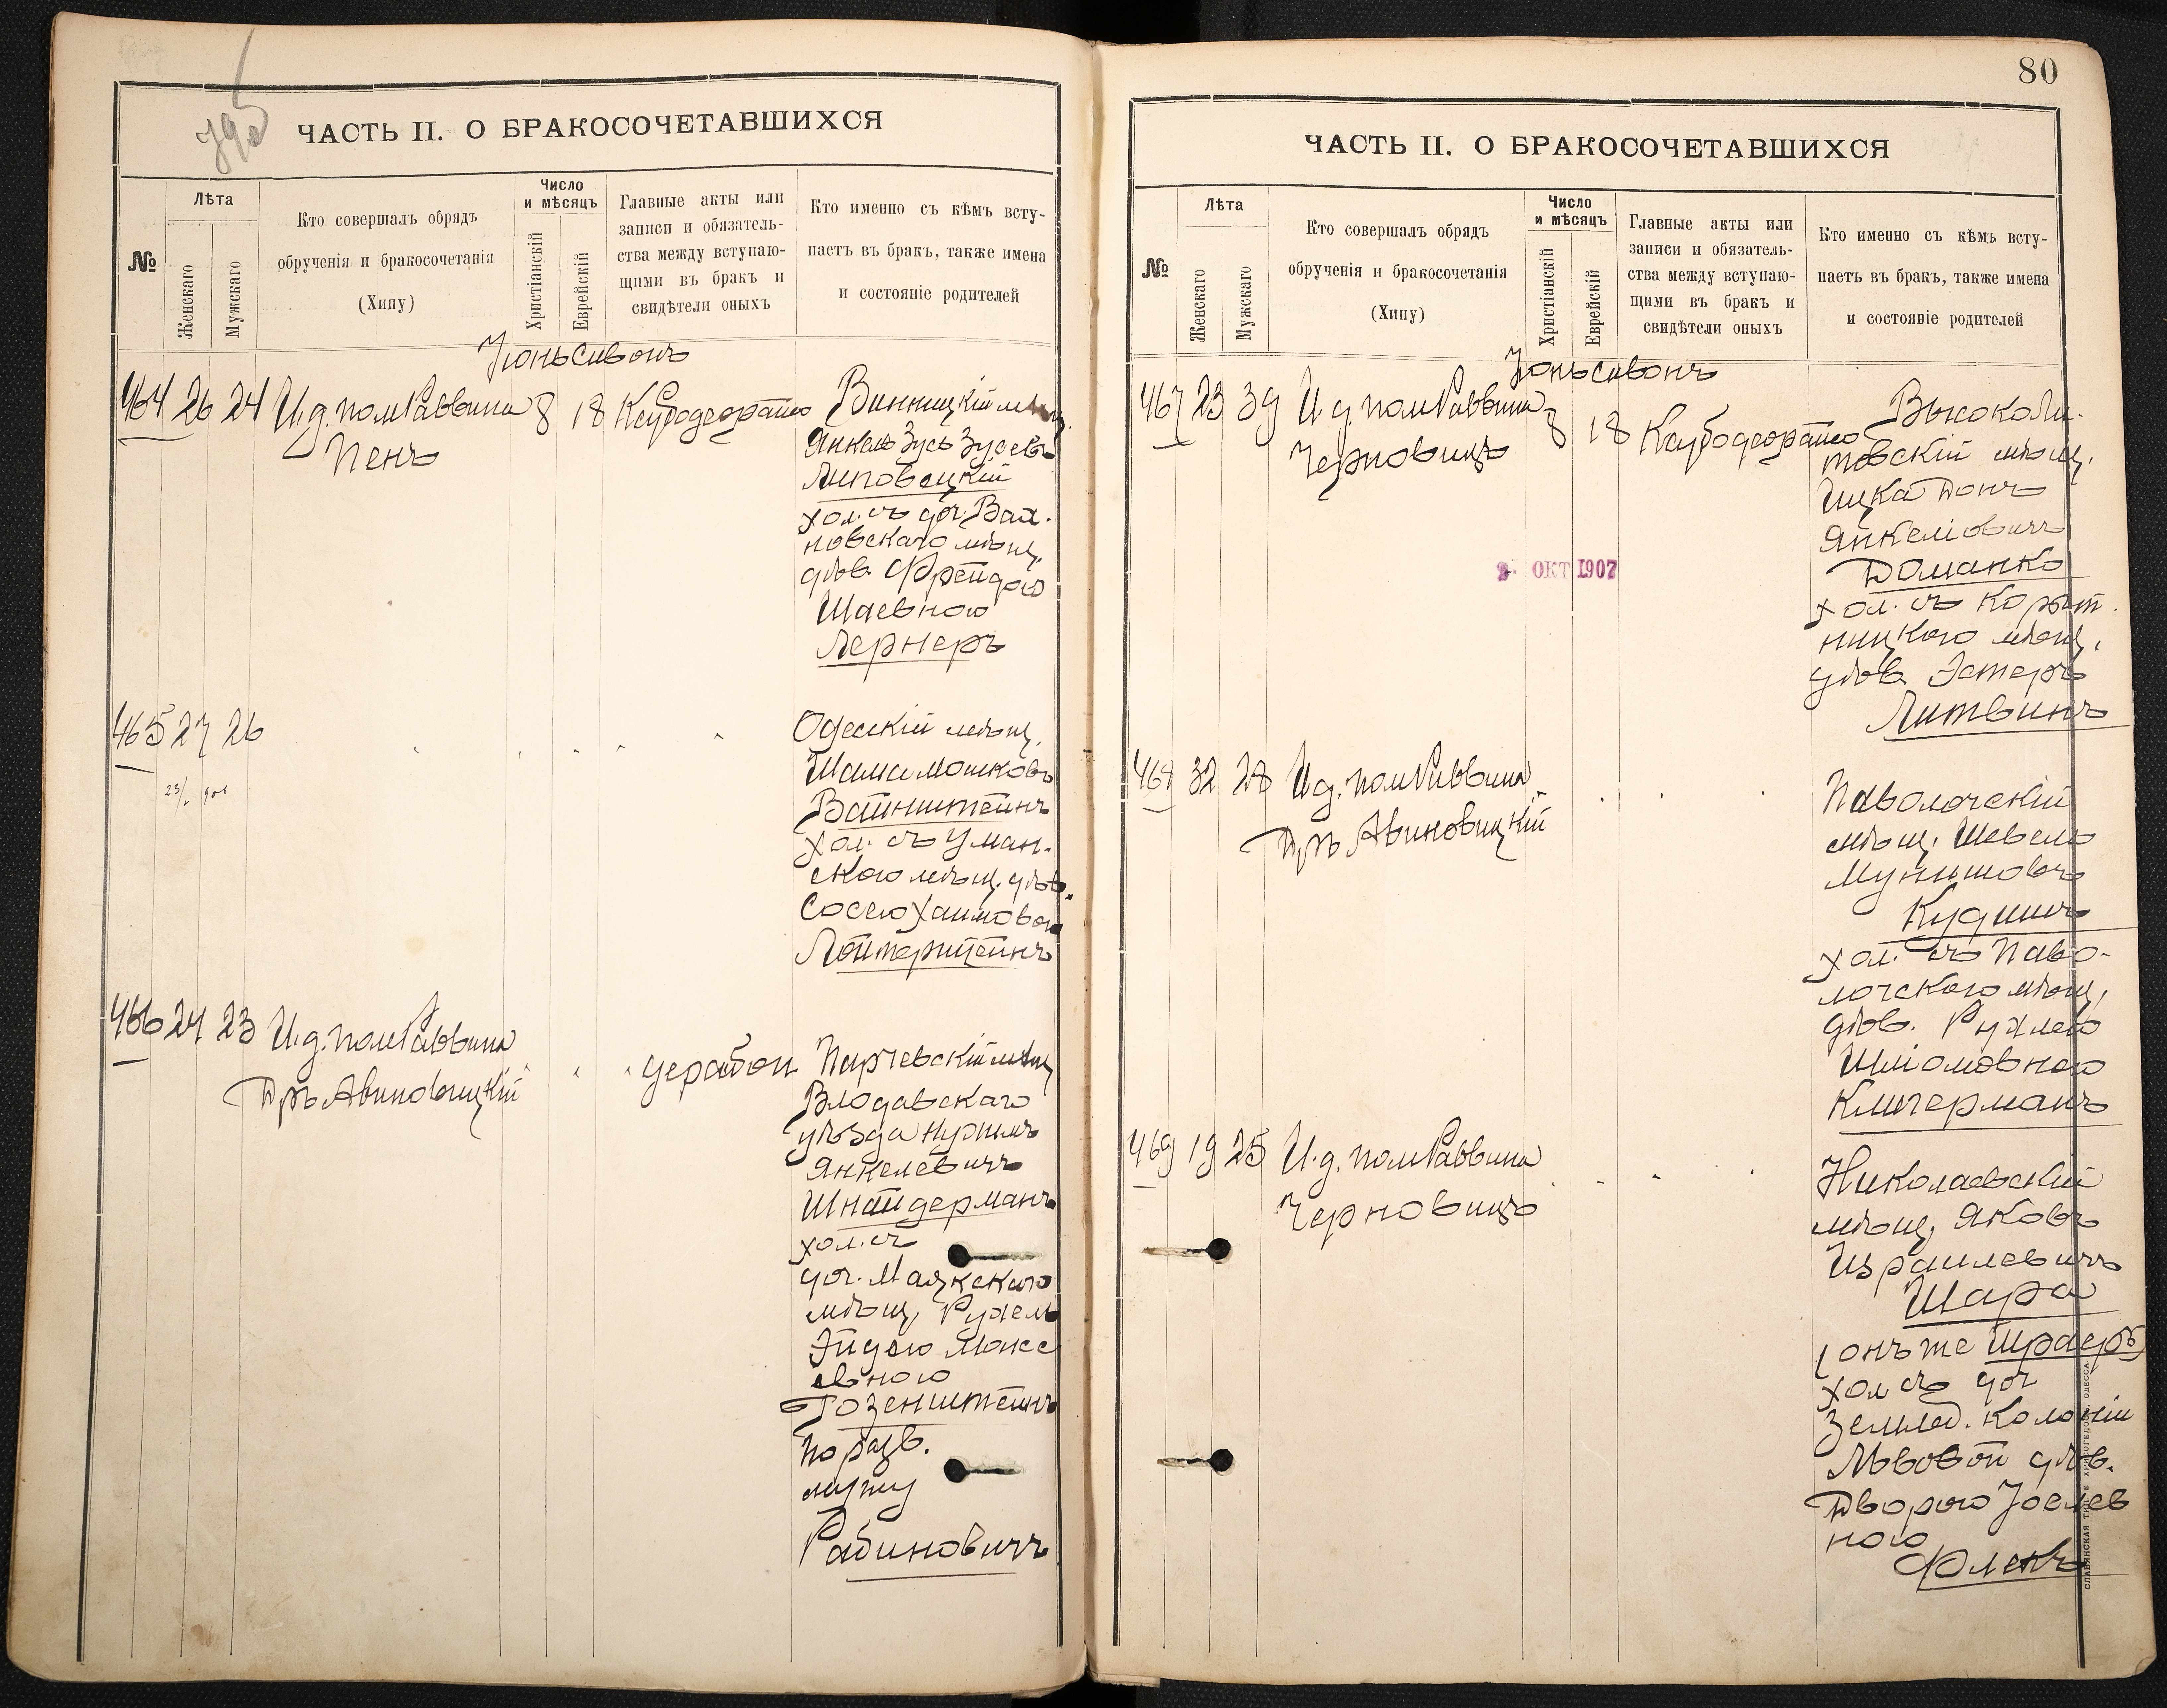 ЧАСТЬ II. О БРАКОСОЧЕТАВШИХСЯ
№
Лѣта
Женскаго
Мужскаго
Кто совершалъ обрядъ
обрученія и бракосочетанія
(Хипу)
Число
и мѣсяцъ
Христіанскій
Еврейскій
Главные акты или
записи и обязатель-
ства между вступаю-
щими въ бракъ и
свидѣтели оныхъ
Кто именно съ кѣмъ всту-
паетъ въ бракъ, также имена
и состояніе родителей
Іюнь Сивонъ
464 26 24 И.д. пом Раввина 8 18
Пенъ
Винницкій мѣщ.
Янкель Зусь Зусевъ
Липовецкій
хол. съ доч. Вах-
новскаго мѣщ.
дѣв. Фрейдою
Шаевною
Лернеръ
465 27 26
Одесскій мѣщ.
Шама Мошковъ
Вайнштейнъ
хол. съ Уман-
скаго мѣщ. дѣв.
Сосею Хаимовой
466 24 23 И.д. пом Раввина
Дръ Авиновицкій
Парчевскій мѣщ
Влодавскаго
уѣзда
Янкелевичъ
Шнайдерманъ
хол. съ
доч. Маякскаго
мѣщ. Рухель
Эйдею
евною
Розенштейнъ
по разв.
мужу
Рабиновичъ
80
ЧАСТЬ II. О БРАКОСОЧЕТАВШИХСЯ
№
Лѣта
Женскаго
Мужскаго
Кто совершалъ обрядъ
обрученія и бракосочетанія
(Хипу)
Число
и мѣсяцъ
Христіанскій
Еврейскій
Главные акты или
записи и обязатель-
ства между вступаю-
щими въ бракъ и
свидѣтели оныхъ
Кто именно съ кѣмъ всту-
паетъ въ бракъ, также имена
и состояніе родителей
Іюнь Сивонъ
467 23 39 И.д. пом Раввина 8 18
Черновицъ
Высоколи-
товскій мѣщ.
Ицка Донъ
Янкеліовичъ
Доманко
хол. съ Корыт-
ницкаго мѣщ.
дѣв. Эстеръ
Литвинъ
2 ОКТ 1907
468 32 28 И.д. пом Раввина
Дръ Авиновицкій
Паволочскій
мѣщ. Шевель
Кудишъ
хол. съ Паво-
лочскаго мѣщ.
дѣв. Рухлею
Шліомовною
Клигерманъ
469 19 25 И.д. пом Раввина
Черновицъ
Николаевскій
мѣщ. Яковъ
Израилевичъ
Шара
(онъ же Шраеръ)
хол съ доч
земled. колоніи
Львовой дѣв.
Дворою Іоелев
ною
Фленъ